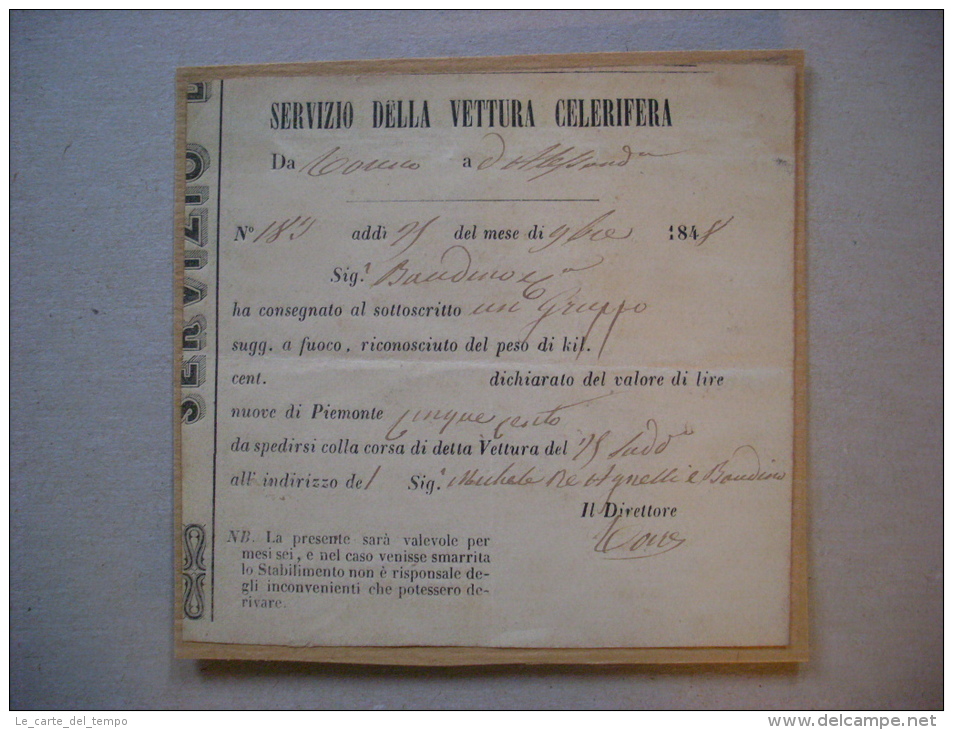 SERVIZIO D
SERVIZIO DELLA VETTURA CELERIFERA
Da Torino a d'Alessandria
N.º 183 addì 25 del mese di 9bre 1848
Sig.r Baudino e Cia
ha consegnato al sottoscritto un Gruppo
sugg. a fuoco, riconosciuto del peso di kil.
cent. dichiarato del valore di lire
nuove di Piemonte Cinque Cento
da spedirsi colla corsa di detta Vettura del 25 sudo
all'indirizzo del Sig.r Michele De Agnelli e Baudino
Il Direttore
NB. La presente sarà valevole per
mesi sei, e nel caso venisse smarrita
lo Stabilimento non è risponsale de-
gli inconvenienti che potessero de-
rivare.
Le_carte_del_tempo
www.delcampe.net